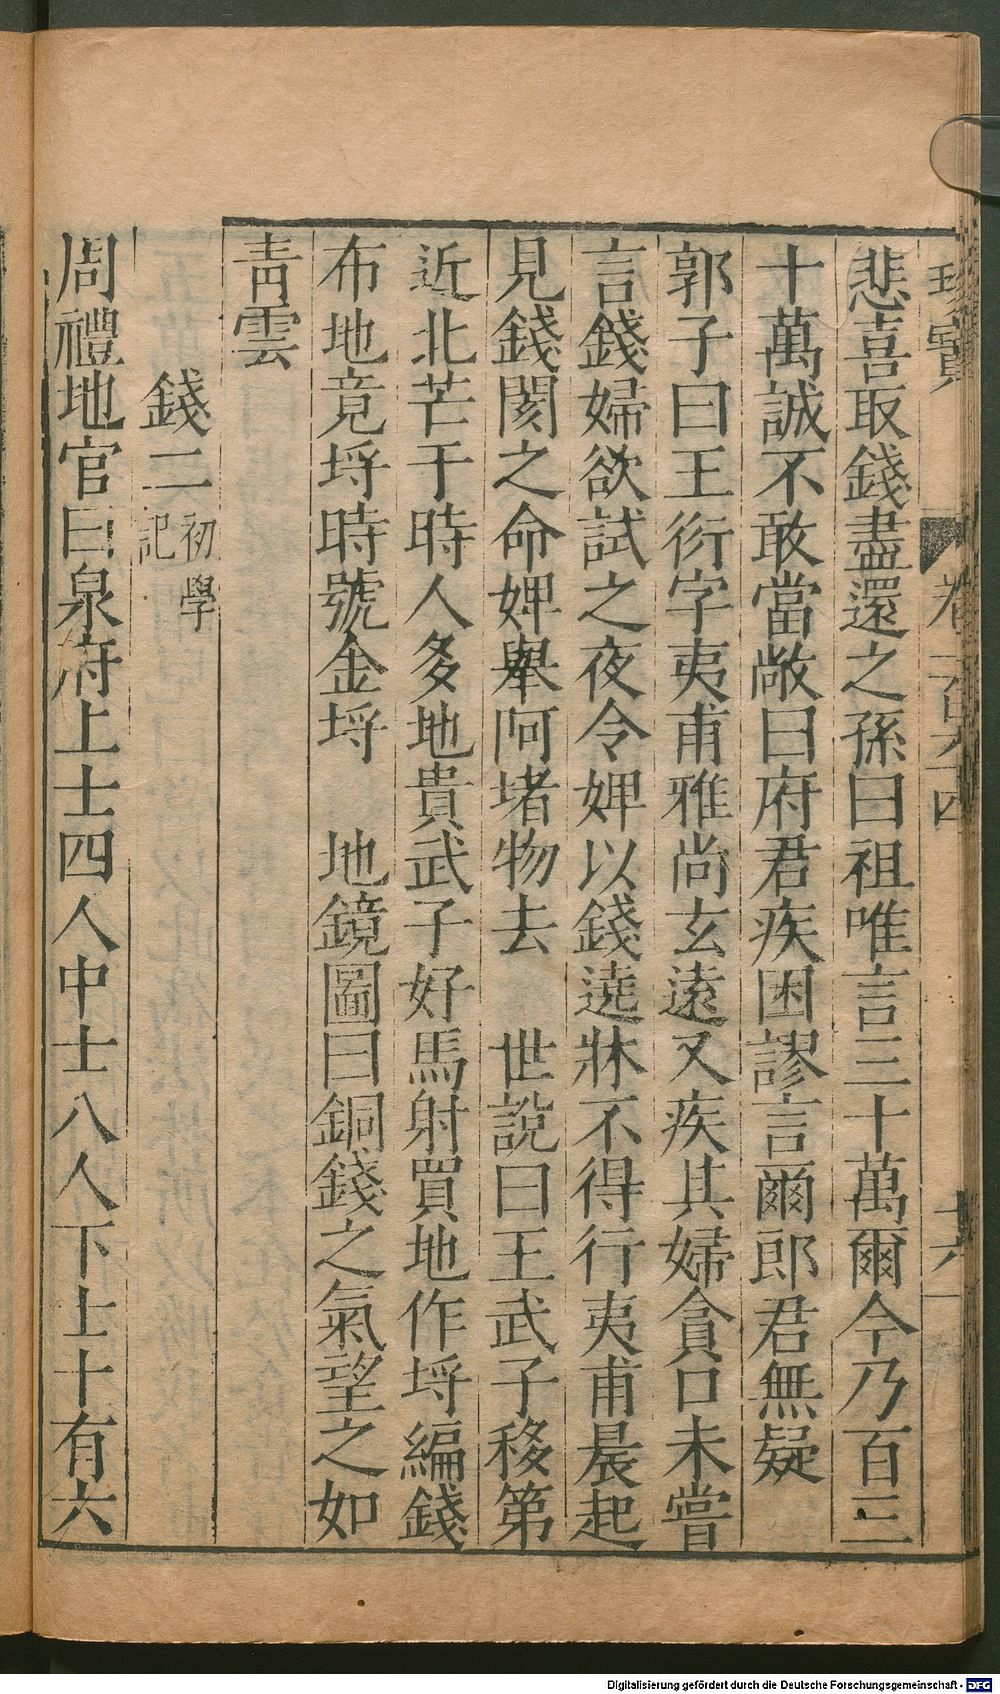 悲喜取錢盡還之孫曰祖唯言三十萬爾今乃百三
十萬誠不敢當敞曰府君疾困謬言爾郎君無疑
郭子曰王衍字夷甫雅尚玄遠又疾其婦貪口未嘗
言錢婦欲試之夜令婢以錢遶牀不得行夷甫晨起
見錢閡之命婢舉阿堵物去　世說曰王武子移第
近北芒于時人多地貴武子好馬射買地作埒編錢
布地竟埒時號金埒　地鏡圖曰銅錢之氣望之如
青雲
錢二初學記
周禮地官曰泉府上士四人中士八人下士十有六
Digitalisierung gefördert durch die Deutsche Forschungsgemeinschaft - DFG